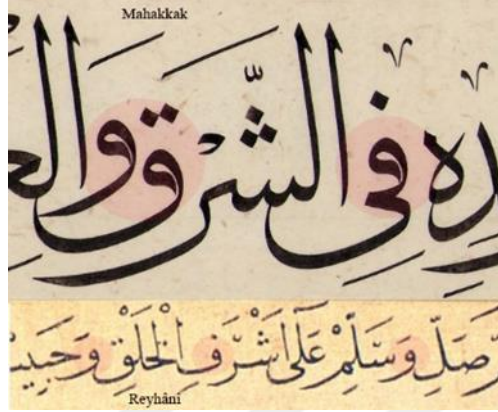 Mahakkak
فِى الشَّرْقِ وَ
صَلِّ وَسَلِّمْ عَلٰى اَشْرَفِ الْخَلْقِ وَ
Reyhânî